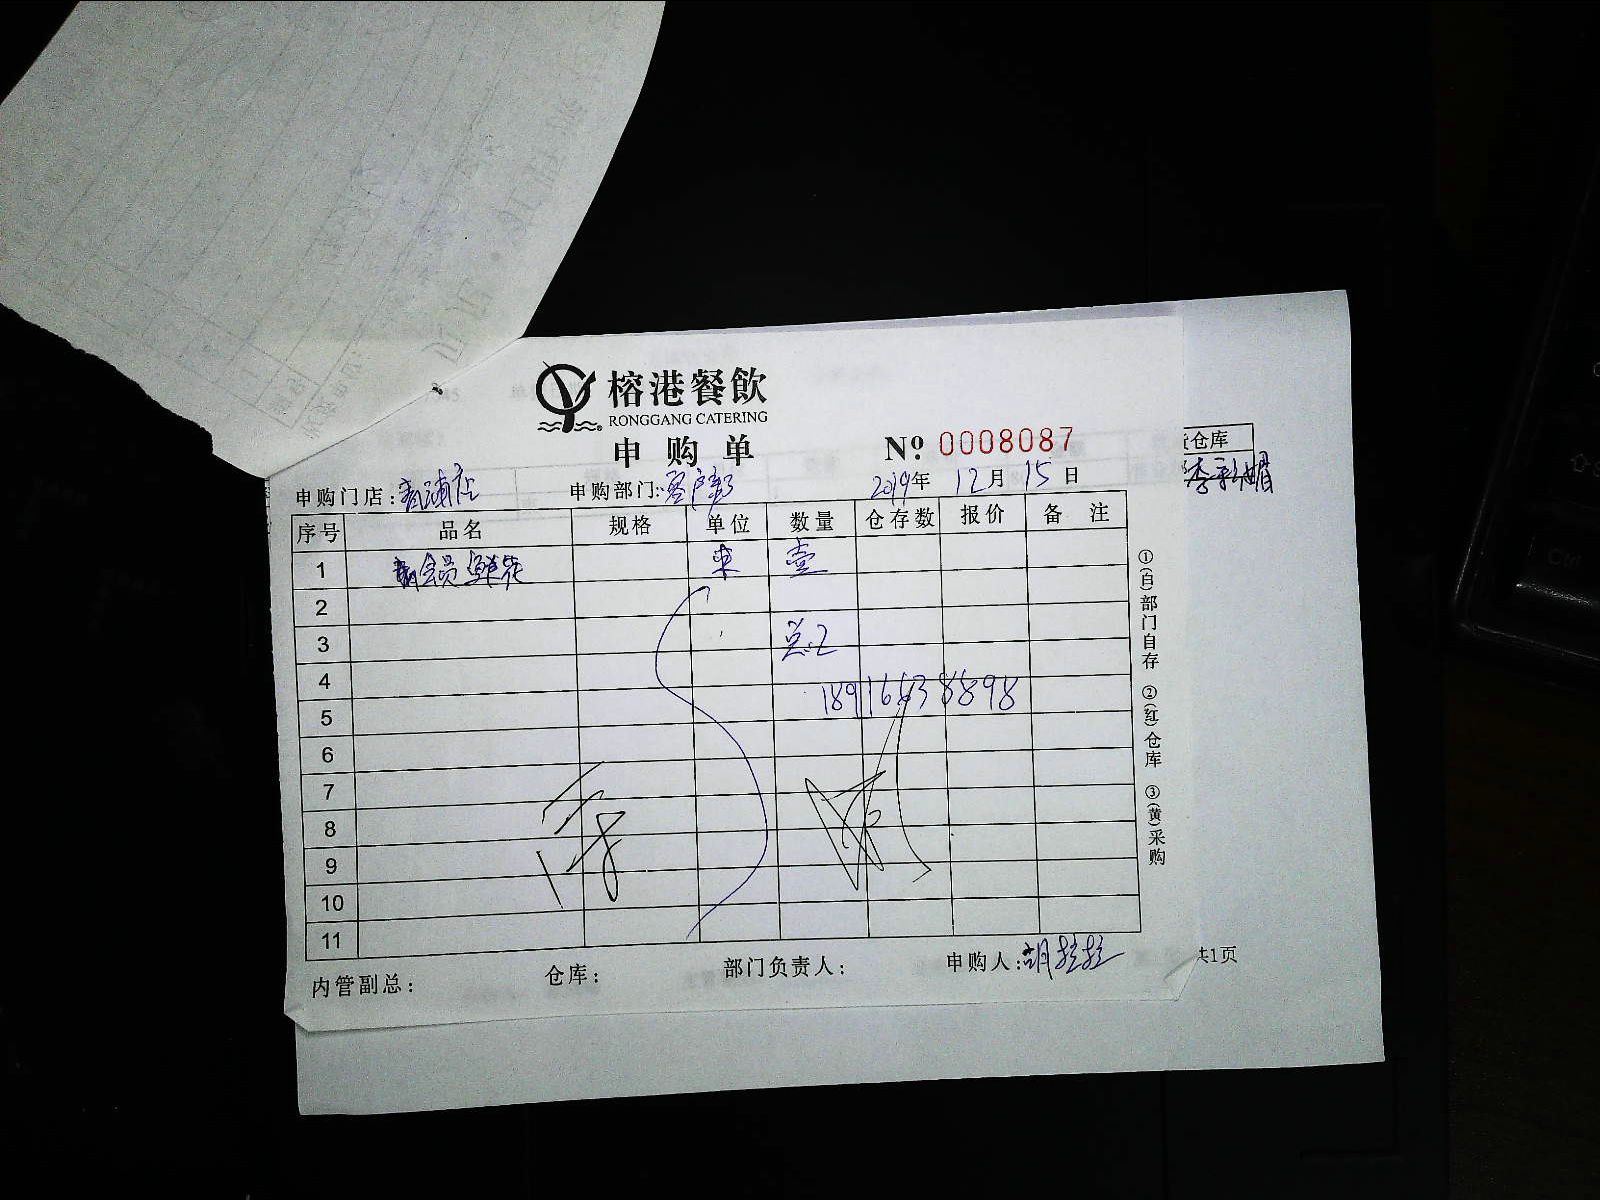 榕港餐飲
RONGGANG CATERING
申购单
Nº 0008087
仓库
申购门店: 申购部门: 客户部 2019年 12月 15日
序号 品名 规格 单位 数量 仓存数 报价 备注
1 会员鲜花 束 壹
2
3
4
5 18916638898
6
7
8
9
10
11
①(白)部门自存 ②(红)仓库 ③(黄)采购
内管副总: 仓库: 部门负责人: 申购人: 胡拉拉
共1页